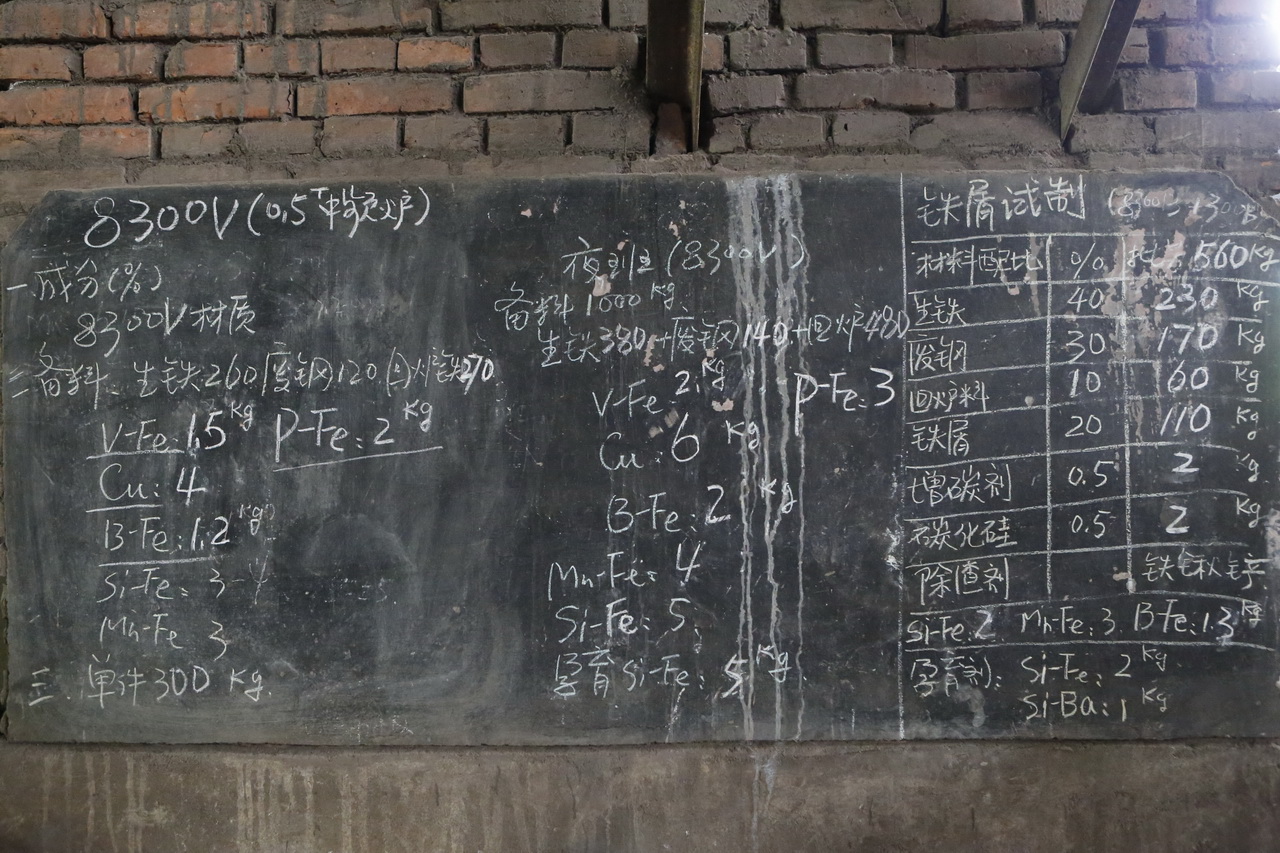 8300V(0.5T中频炉)
一.成分(%)
8300V材质
二备料、生铁260废钢120回炉铁270
V-Fe:1.5Kg P-Fe:2Kg
Cu:4
B-Fe:1.2Kg
Si-Fe:3-4
Mn-Fe 3
三.单件300Kg.
夜班(8300V)
备料1000Kg.
生铁380+废钢140+回炉480
V-Fe:2Kg P-Fe:3
Cu:6Kg
B-Fe:2Kg
Mn-Fe:4
Si-Fe:5
孕育Si-Fe:5Kg
铁屑试制
材料配比 % 560Kg
生铁 40 230Kg
废钢 30 170Kg
回炉料 10 60Kg
铁屑 20 110Kg
增碳剂 0.5 2Kg
碳化硅 0.5 2Kg
除渣剂
Si-Fe:2 Mn-Fe:3 B-Fe:1.3Kg
孕育剂: Si-Fe:2Kg
Si-Ba:1Kg